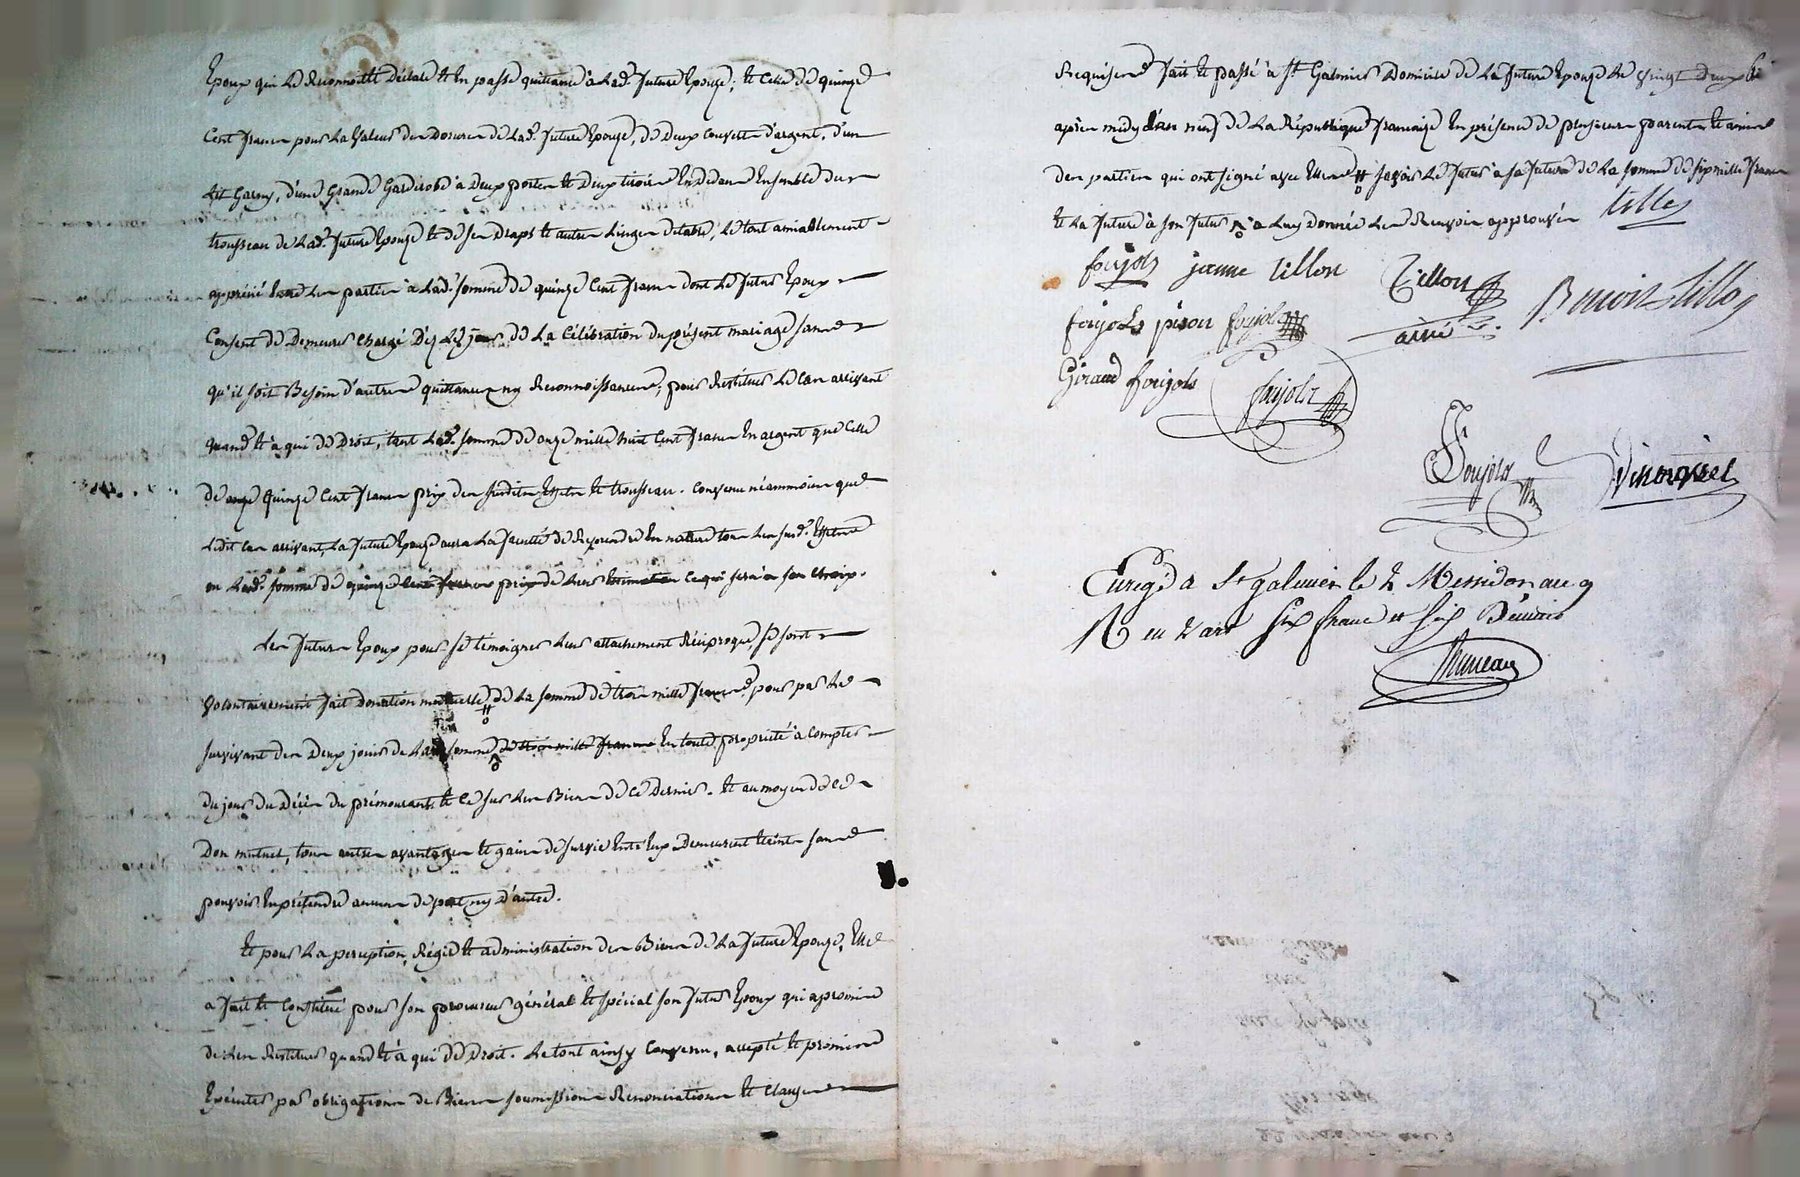 Epoux qui Le Reconnoitt Déclare et En passe quittance à Lad.e future Epouze; et Celle de quinze
Cent francs pour La Valeur des Dorures de Lad.e future Epouze, de Deux Couverts d'argent, d'un
Lit Garny, d'une Grande Garderobe à Deux portes et Deux tiroirs En dedans Ensemble du
trousseau de Lad.e future Epouze et de ses Draps et autres Linges de table, Le tout amiablement
apprécié Entre Les parties à Lad.e Somme de quinze Cent francs dont Le futur Epoux
Consent de Demeurer Chargé Dès Le jour de La Célébration du présent mariage sans
qu'il soit Besoin d'autres quittances ny Reconnoissances; pour Restituer Le Cas arrivant
quand et à qui de Droit, tant Lad.e Somme de onze mille huit Cent francs En argent que Celle
de quinze Cent francs prix des susdits Effets et trousseau. Convenu néammoins que
Ledit Cas arrivant, La future Epouze aura La faculté de Reprendre En nature tous Les susd.s Effets
ou Lad.e somme de quinze Cent francs prix de Leur Estimation Ce qui sera à son Choix.
Les futurs Epoux pour Se témoigner Leur attachement Réciproque, Se sont
Volontairement fait Donation mutuelle de La Somme de trois mille francs, pour par Le
survivant des Deux jouir de Lad.e Somme de trois mille francs En toute propriété à Compter
du jour du Décès du prémourant, et Ce sur Les Biens de Ce Dernier. Et au moyen de Ce
Don mutuel, tous autres avantages et gains de survie Entre Eux Demeurent Eteints sans
pouvoir En prétendre aucuns de part ny d'autre.
Et pour La perception, Régie et administration des Biens de La future Epouze, Elle
a fait et Constitué pour son procureur général et spécial son futur Epoux qui a promis
de Les Restituer quand et à qui de Droit. Le tout ainsy Convenu, accepté et promis
Exécuter par obligations de Biens soumissions Renonciations et Clauses
Requises. fait et passé à St Galmier Domicile de La future Epouze Le vingt Deux
après midy L'an neuf de La République française En présence de plusieurs parents et amis
des parties qui ont signé avec Elles savoir Le futur à sa future de La somme de six mille francs
et La future à son futur Les Renvois approuvés tillon
foujols jeanne tillon Tillon ainé Benoit Tillon
foujols pison foujols
Giraud foujols foujols
foujols Vinoy
Enregé a St galmier le 2 Messidor an 9
R en 2 art Six francs et Six Décimes